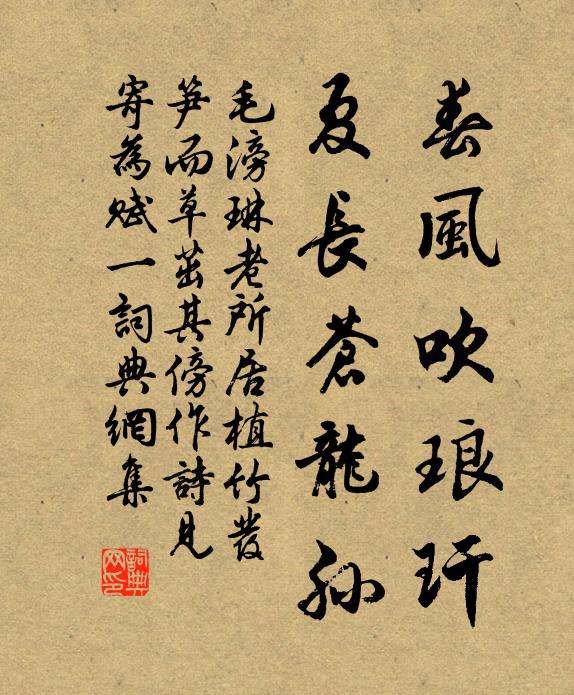 春風吹琅玕
夏長蒼龍孫
毛滂琳老所居植竹發
笋而草茁其傍作詩見
寄為賦一詞典網集
詞典网印